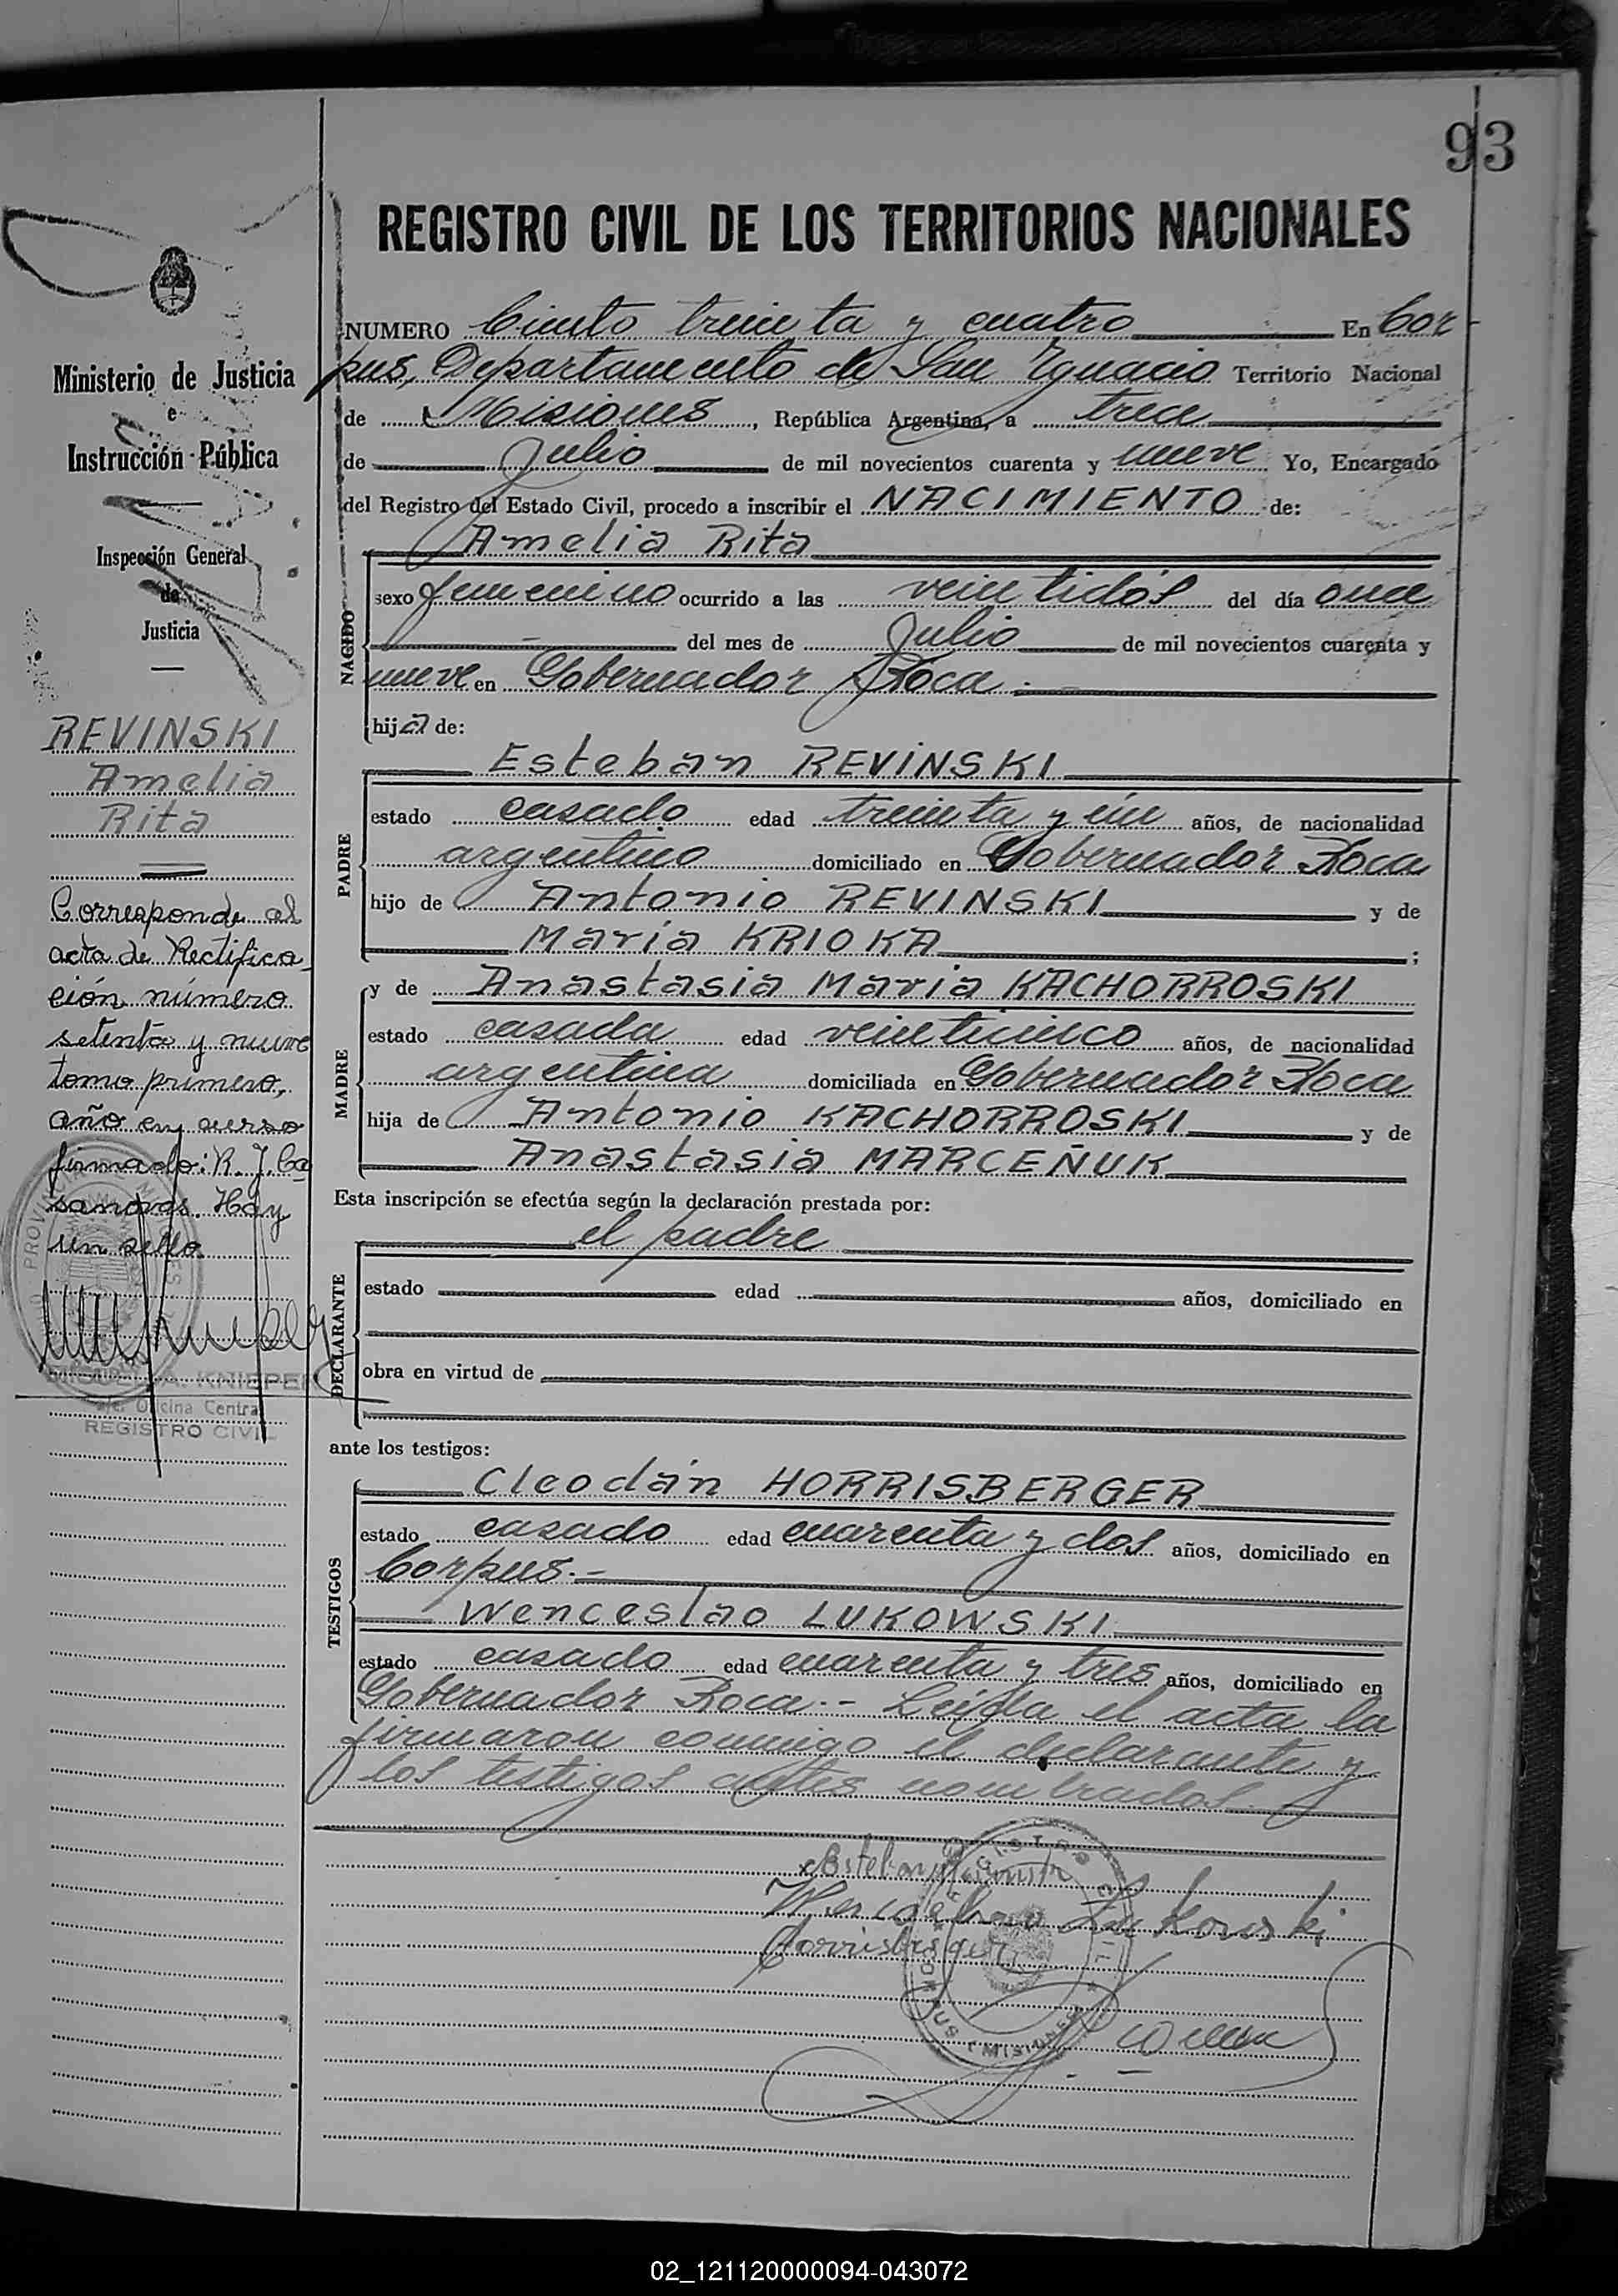 93
REGISTRO CIVIL DE LOS TERRITORIOS NACIONALES
Ministerio de Justicia
e
Instrucción Pública
Inspección General
de
Justicia
REVINSKI
Amelia
Rita
Corresponde al
acta de Rectifica
ción número
setenta y nueve
tomo primero,
año en curso
firmado: R. J. Ca
sanovas. Hay
un sello
PROVINCIA DE MISIONES
MIGUEL A. KNIEPER
Oficina Central
REGISTRO CIVIL
NUMERO Ciento treinta y cuatro En Cor
pus, Departamento de San Ygnacio Territorio Nacional
de Misiones, República Argentina, a trece
de Julio de mil novecientos cuarenta y nueve Yo, Encargado
del Registro del Estado Civil, procedo a inscribir el NACIMIENTO de:
NACIDO
Amelia Rita
sexo femenino ocurrido a las veintidós del día once
del mes de Julio de mil novecientos cuarenta y
nueve en Gobernador Roca.
hija de:
PADRE
Esteban REVINSKI
estado casado edad treinta y un años, de nacionalidad
argentino domiciliado en Gobernador Roca
hijo de Antonio REVINSKI y de
María KRIOKA ;
MADRE
y de Anastasia Maria KACHORROSKI
estado casada edad veinticinco años, de nacionalidad
argentina domiciliada en Gobernador Roca
hija de Antonio KACHORROSKI y de
Anastasia MARCEÑUK
Esta inscripción se efectúa según la declaración prestada por:
DECLARANTE
el padre
estado edad años, domiciliado en
obra en virtud de
ante los testigos:
TESTIGOS
Cleodán HORRISBERGER
estado casado edad cuarenta y dos años, domiciliado en
Corpus.-
Wenceslao LUKOWSKI
estado casado edad cuarenta y tres años, domiciliado en
Gobernador Roca.- Leída el acta la
firmaron conmigo el declarante y
los testigos antes nombrados
Esteban
Lukowski
Horrisberger
REGISTRO CIVIL
CORPUS (MISIONES)
02_121120000094-043072